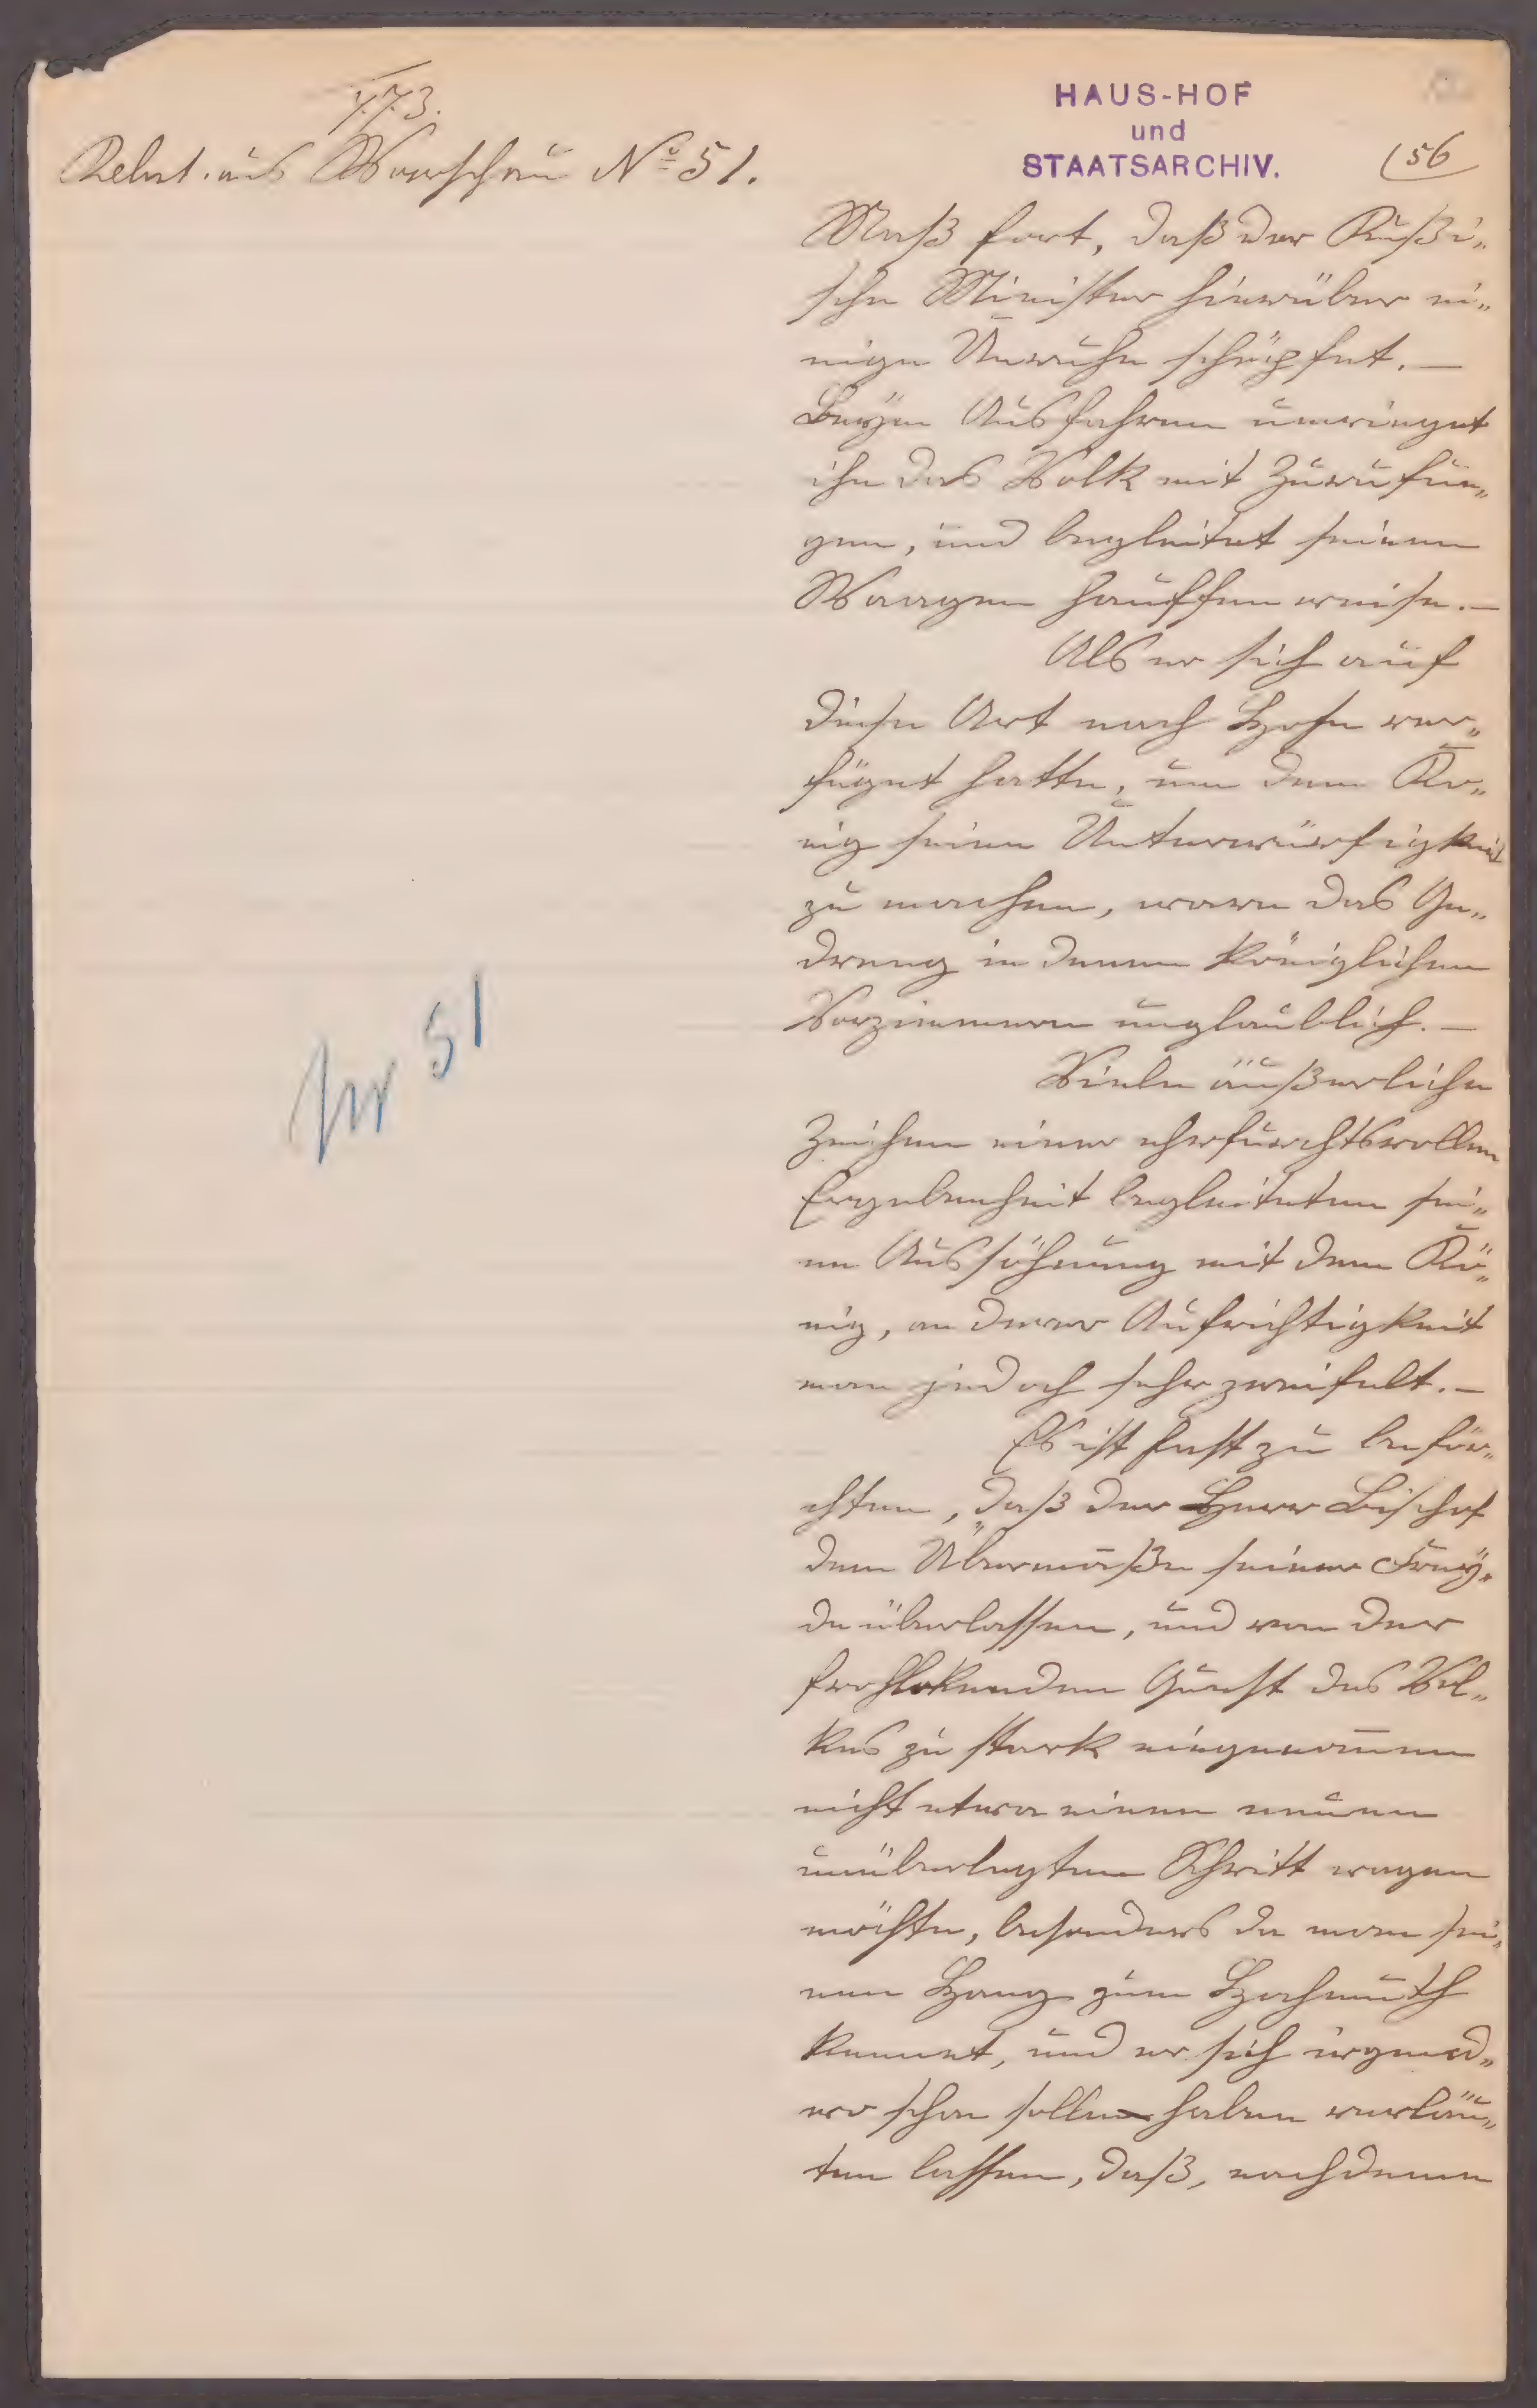 773.
Relat. aus Warschau No 51.
HAUS-HOF
und
STAATSARCHIV.
56
Maß fort, daß der Rußi„
sche Minister hierüber ei„
nige Unruhe schöpfet. —
Beÿm Ausfahren umringet
ihn das Volk mit Zurufun„
gen, und begleitet seinen
Waagen hauffenweise. —
Als er sich auf
diese Art nach Hofe ver„
füget hatte, um dem Kö„
nig seine Unterwürfigkeit
zu machen, ware das Ge„
dreng in denen königlichen
Vorzimmern unglaublich. —
Viele äußerliche
Zeichen einer ehrfurchtsvollen
Ergebenheit begleiteten sei„
ne Aussöhnung mit dem Kö„
nig, an derer Aufrichtigkeit
man jedoch sehr zweifelt. —
Es ist fast zu beför„
chten, daß der Herr Bischof
dem Übermaße seiner Freÿ„
de überlassen, und von der
frohlokenden Gunst des Vol„
kes zu stark eingenom̄en
nicht etwa einen neuen
unüberlegten Schritt wagen
möchte, besonders da man sei„
nen Hang zum Hochmuth
kennet, und er sich irgend„
wo schon solle haben verläu„
ten lassen, daß, nachdeme
Nr 51